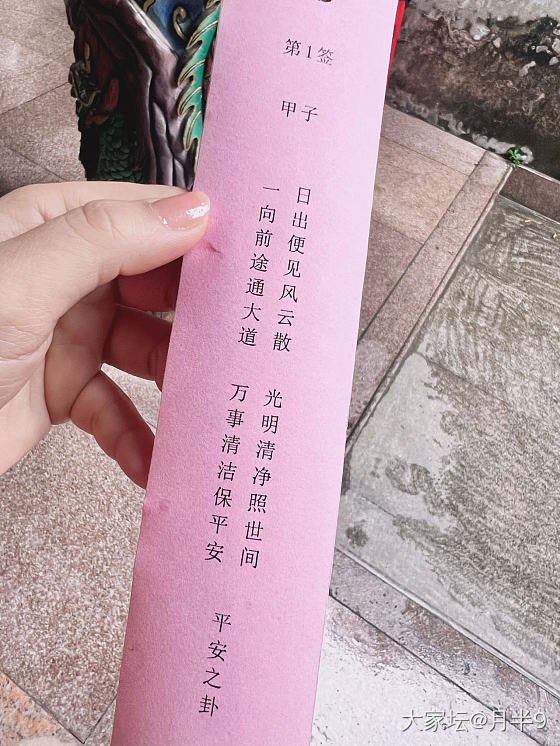 第1签
甲子
日出便见风云散 光明清净照世间
一向前途通大道 万事清洁保平安
平安之卦
大家坛@月半9